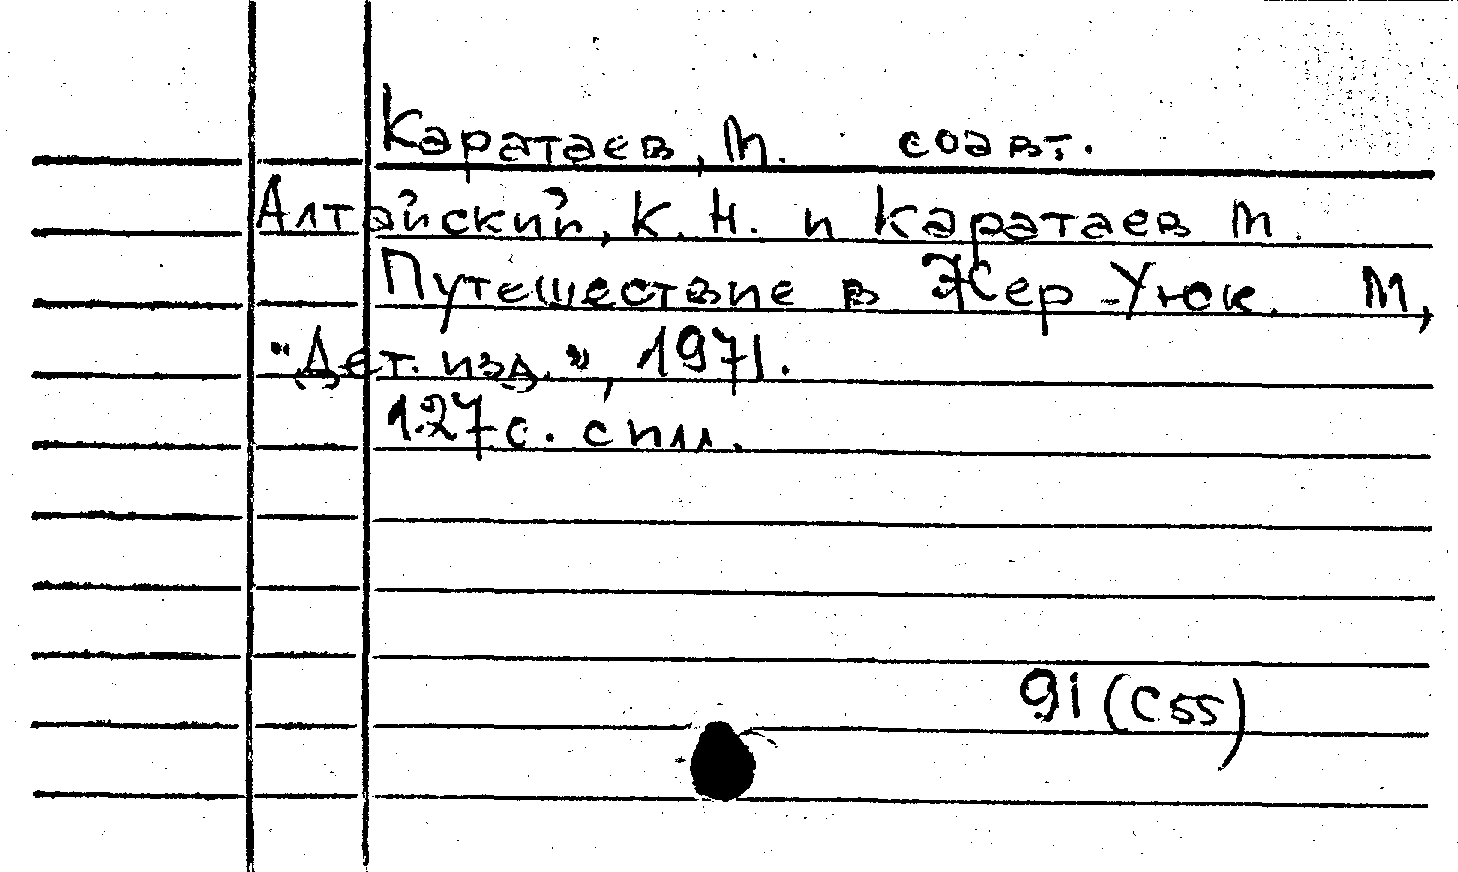 Каратаев, М. соавт.
Алтайский, К. Н. и Каратаев М.
Путешествие в Жер-Уюк. М,
"Дет. изд.", 1971.
127с. с илл.
91 (С55)